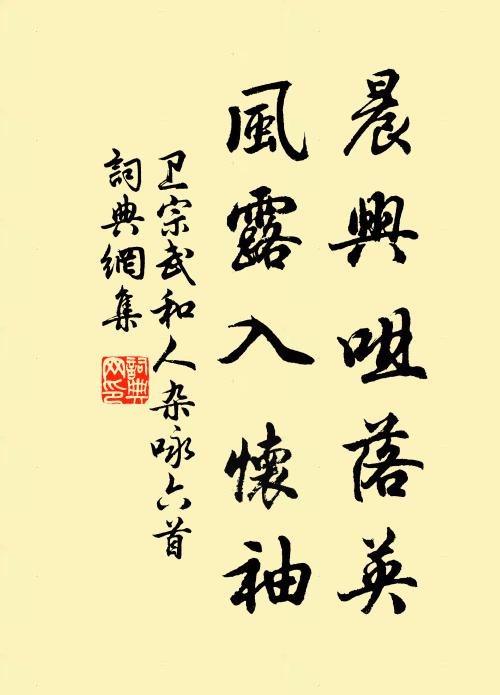 晨興咀落英
風露入懷袖
卫宗武和人杂咏六首
詞典網集
詞典网印